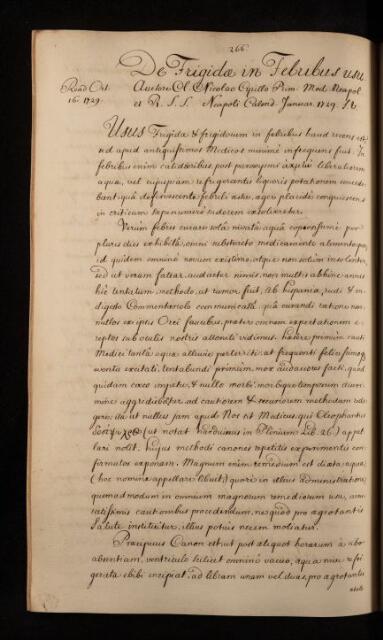 266
De Frigidæ in Febribus usu
Read Oct. 16. 1729.
Auctore Cl. Nicolao Cyrillo Prim. Med. Neapol
et R. S. S. Neapoli Calend. Januar. 1729.
Usus Frigidæ & frigidorum in febribus haud recens est,
sed apud antiquissimos Medicos minimè infrequens fuit. In
febribus enim calidioribus post
aquæ, vel cujuspiam refrigerantis liquoris potationem concede-
bant, quâ defervescente febrili æstu, æger placidè conquiescens
in criticum sæpenumerò sudorem exolveretur.
Verùm febres curare solâ nivatâ aquâ copiosissimè per
plures dies exhibitâ, omni substracto medicamento, alimentoque,
id quidem omninò novum existimo, atque non solùm insolenter,
sed ut verum fatear, audacter nimis, non multis abhinc annis
hic tentatum, methodo, ut rumor fuit, ab Hispania, rudi & in-
digesto Commentariolo communicatâ. quâ curandi ratione non-
nullos ex ipsis Orci faucibus, præter omnem expectationem e-
reptos sub oculis nostris attoniti vidimus. hærere primùm cauti
Medici tantâ aquæ alluvie perterriti: at frequenti felicium
eventu excitati, tentabundi primùm, mox audaciores facti, quod
quidam cæco impetu, & nullo morbi, morbique temporum discri-
mine aggrediebatur, ad cautiorem & securiorem methodum rede-
gere: ita ut nullus jam apud Nos sit Medicus, qui Cleophantus
(ut notat Harduinus in Plinium Lib. 26.) appel-
lari nolit. hujus methodi canones repetitis experimentis con-
firmatos exponam. Magnum enim remedium est diæta aquea
(hoc nomine appellari libuit,) quare in illius administratione,
quemadmodum in omnium magnorum remediorum usu, cau-
tissimis cautionibus procedendum, ne quod pro ægrotantis
Salute instituitur, illius potiùs necem moliatur.
Præcipuus Canon est, ut post aliquot horarum à cibo
absentiam, ventriculo scilicet omninò vacuo, aqua nive re-
frigerata ebibi incipiat, ad libram unam vel duas, pro ægrotantis